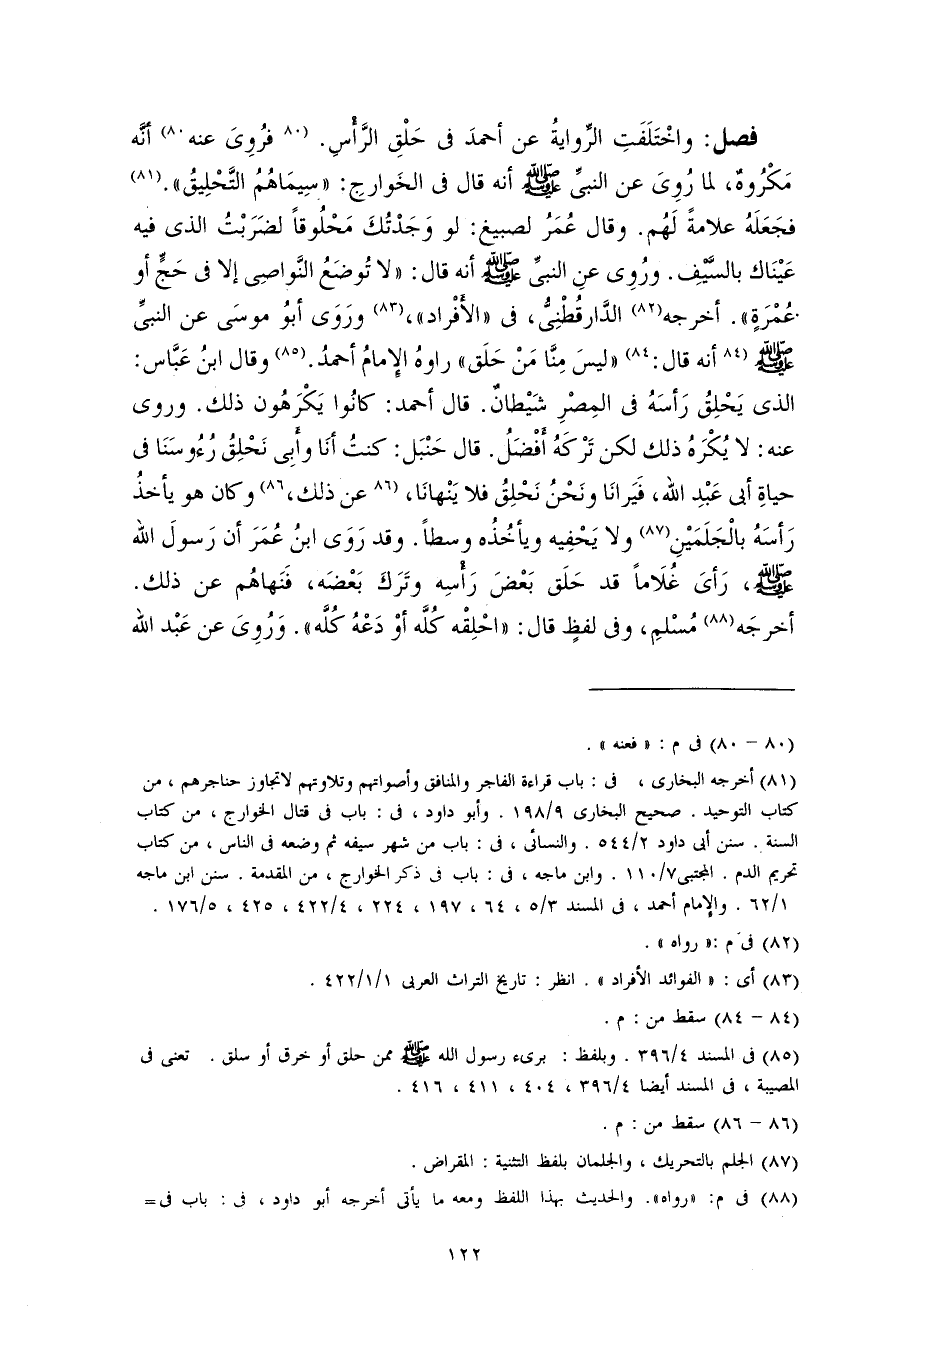 فصل: واخْتَلَفَتِ الرِّوايةُ عن أحمدَ فى حَلْقِ الرَّأْسِ. (٨٠ فرُوِىَ عنه ٨٠) أنَّه
مَكْرُوهٌ، لما رُوِىَ عن النبىِّ ﷺ أنه قال فى الخَوارجِ: «سِيمَاهُمُ التَّحْلِيقُ».(٨١)
فجَعَلَهُ علامةً لَهُم. وقال عُمَرُ لصبيغ: لو وَجَدْتُكَ مَحْلُوقاً لضَرَبْتُ الذى فيه
عَيْنَاك بالسَّيْفِ. ورُوِى عنِ النبىِّ ﷺ أنه قال: «لا تُوضَعُ النَّواصِى إلا فى حَجٍّ أو
عُمْرَةٍ». أخرجه(٨٢) الدَّارقُطْنِىُّ، فى «الأَفْراد»،(٨٣) ورَوَى أبُو موسَى عن النبىِّ
ﷺ (٨٤ أنه قال:٨٤) «ليسَ مِنَّا مَنْ حَلَق» راوهُ الإمامُ أحمدُ.(٨٥) وقال ابنُ عَبَّاس:
الذى يَحْلِقُ رَأسَهُ فى المِصْرِ شَيْطانٌ. قال أحمد: كانُوا يَكْرَهُون ذلك. وروى
عنه: لا يُكْرَهُ ذلك لكن تَرْكَهُ أَفْضَلُ. قال حَنْبَل: كنتُ أنَا وأَبِى نَحْلِقُ رُءُوسَنَا فى
حياةِ أبى عَبْدِ الله، فَيَرانَا ونَحْنُ نَحْلِقُ فلا يَنْهانَا، (٨٦ عن ذلك،٨٦) وكان هو يأخذُ
رَأسَهُ بالْجَلَمَيْنِ(٨٧) ولا يَحْفِيه ويأخُذُه وسطاً. وقد رَوَى ابنُ عُمَرَ أن رَسولَ الله
ﷺ، رَأىَ غُلَاماً قد حَلَق بَعْضَ رَأْسِه وتَرَكَ بَعْضَه، فَنَهاهُم عن ذلك.
أخرجَه(٨٨) مُسْلمٍ، وفى لفظٍ قال: «احْلِقْه كُلَّه أوْ دَعْهُ كُلَّه». وَرُوِىَ عن عَبْد الله
(٨٠ - ٨٠) فى م : « فعنه » .
(٨١) أخرجه البخارى ، فى : باب قراءة الفاجر والمنافق وأصواتهم وتلاوتهم لاتجاوز حناجرهم ، من
كتاب التوحيد . صحيح البخارى ١٩٨/٩ . وأبو داود ، فى : باب فى قتال الخوارج ، من كتاب
السنة . سنن أبى داود ٥٤٤/٢ . والنسائى ، فى : باب من شهر سيفه ثم وضعه فى الناس ، من كتاب
تحريم الدم . المجتبى١١٠/٧ . وابن ماجه ، فى : باب فى ذكر الخوارج ، من المقدمة . سنن ابن ماجه
٦٢/١ . والإمام أحمد ، فى المسند ٥/٣ ، ٦٤ ، ١٩٧ ، ٢٢٤ ، ٤٢٢/٤ ، ٤٢٥ ، ١٧٦/٥ .
(٨٢) فى م :« رواه » .
(٨٣) أى : « الفوائد الأفراد » . انظر : تاريخ التراث العربى ٤٢٢/١/١ .
(٨٤ - ٨٤) سقط من : م .
(٨٥) فى المسند ٣٩٦/٤ . وبلفظ : برىء رسول الله ﷺ ممن حلق أو خرق أو سلق . تعنى فى
المصيبة ، فى المسند أيضا ٣٩٦/٤ ، ٤٠٤ ، ٤١١ ، ٤١٦ .
(٨٦ - ٨٦) سقط من : م .
(٨٧) الجلم بالتحريك ، والجلمان بلفظ التثنية : المقراض .
(٨٨) فى م: «رواه». والحديث بهذا اللفظ ومعه ما يأتى أخرجه أبو داود ، فى : باب فى=
١٢٢